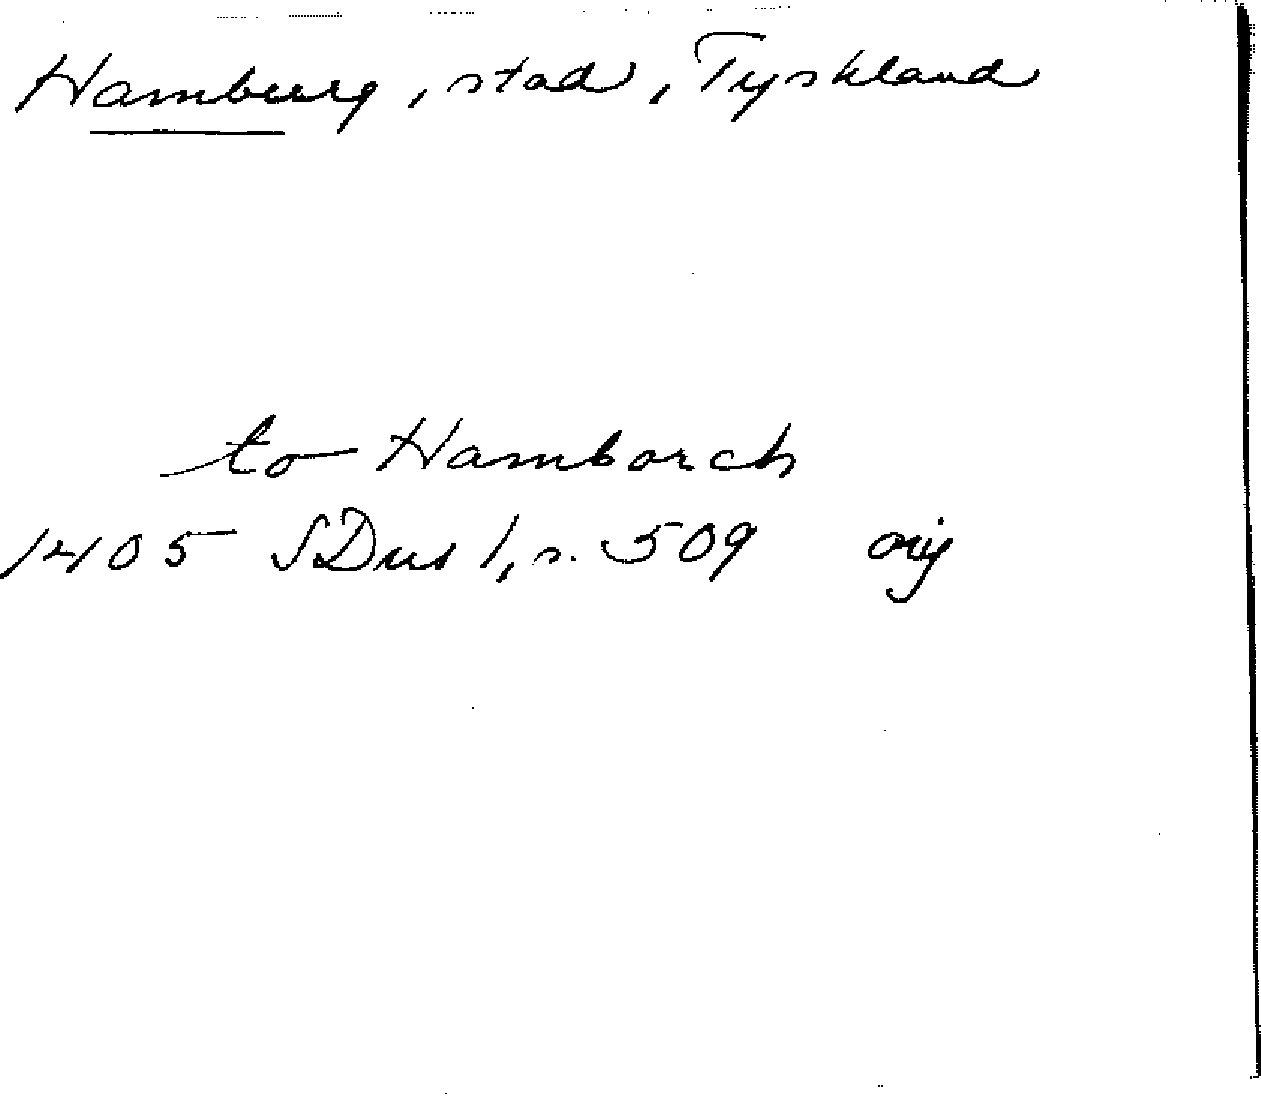 Hamburg, stad, Tyskland
to Hamborch
1405 SDns 1, s. 509 orig